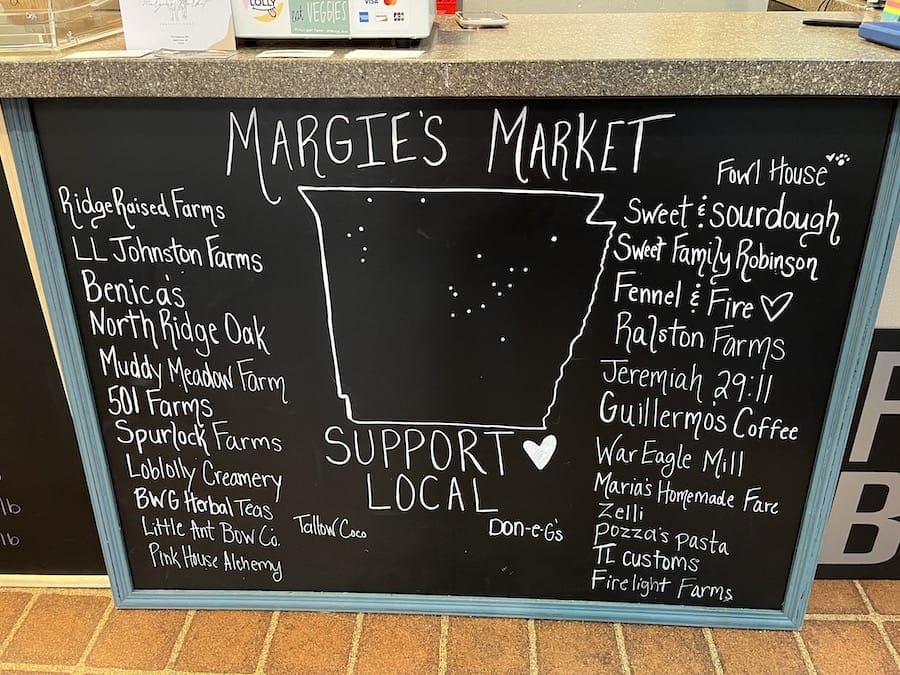 LOLLY
eat VEGGIES
VISA
MARGIE'S MARKET
RidgeRaised Farms
LL Johnston Farms
Benica's
North Ridge Oak
Muddy Meadow Farm
501 Farms
Spurlock Farms
Loblolly Creamery
BWG Herbal Teas
Little Ant Bow Co.
Pink House Alchemy
SUPPORT
LOCAL
Tallow Coco
Don-e-G's
Fowl House
Sweet & Sourdough
Sweet Family Robinson
Fennel & Fire
Ralston Farms
Jeremiah 29:11
Guillermo's Coffee
War Eagle Mill
Maria's Homemade Fare
Zelli
Pozza's pasta
TL customs
Firelight Farms
lb
lb
B